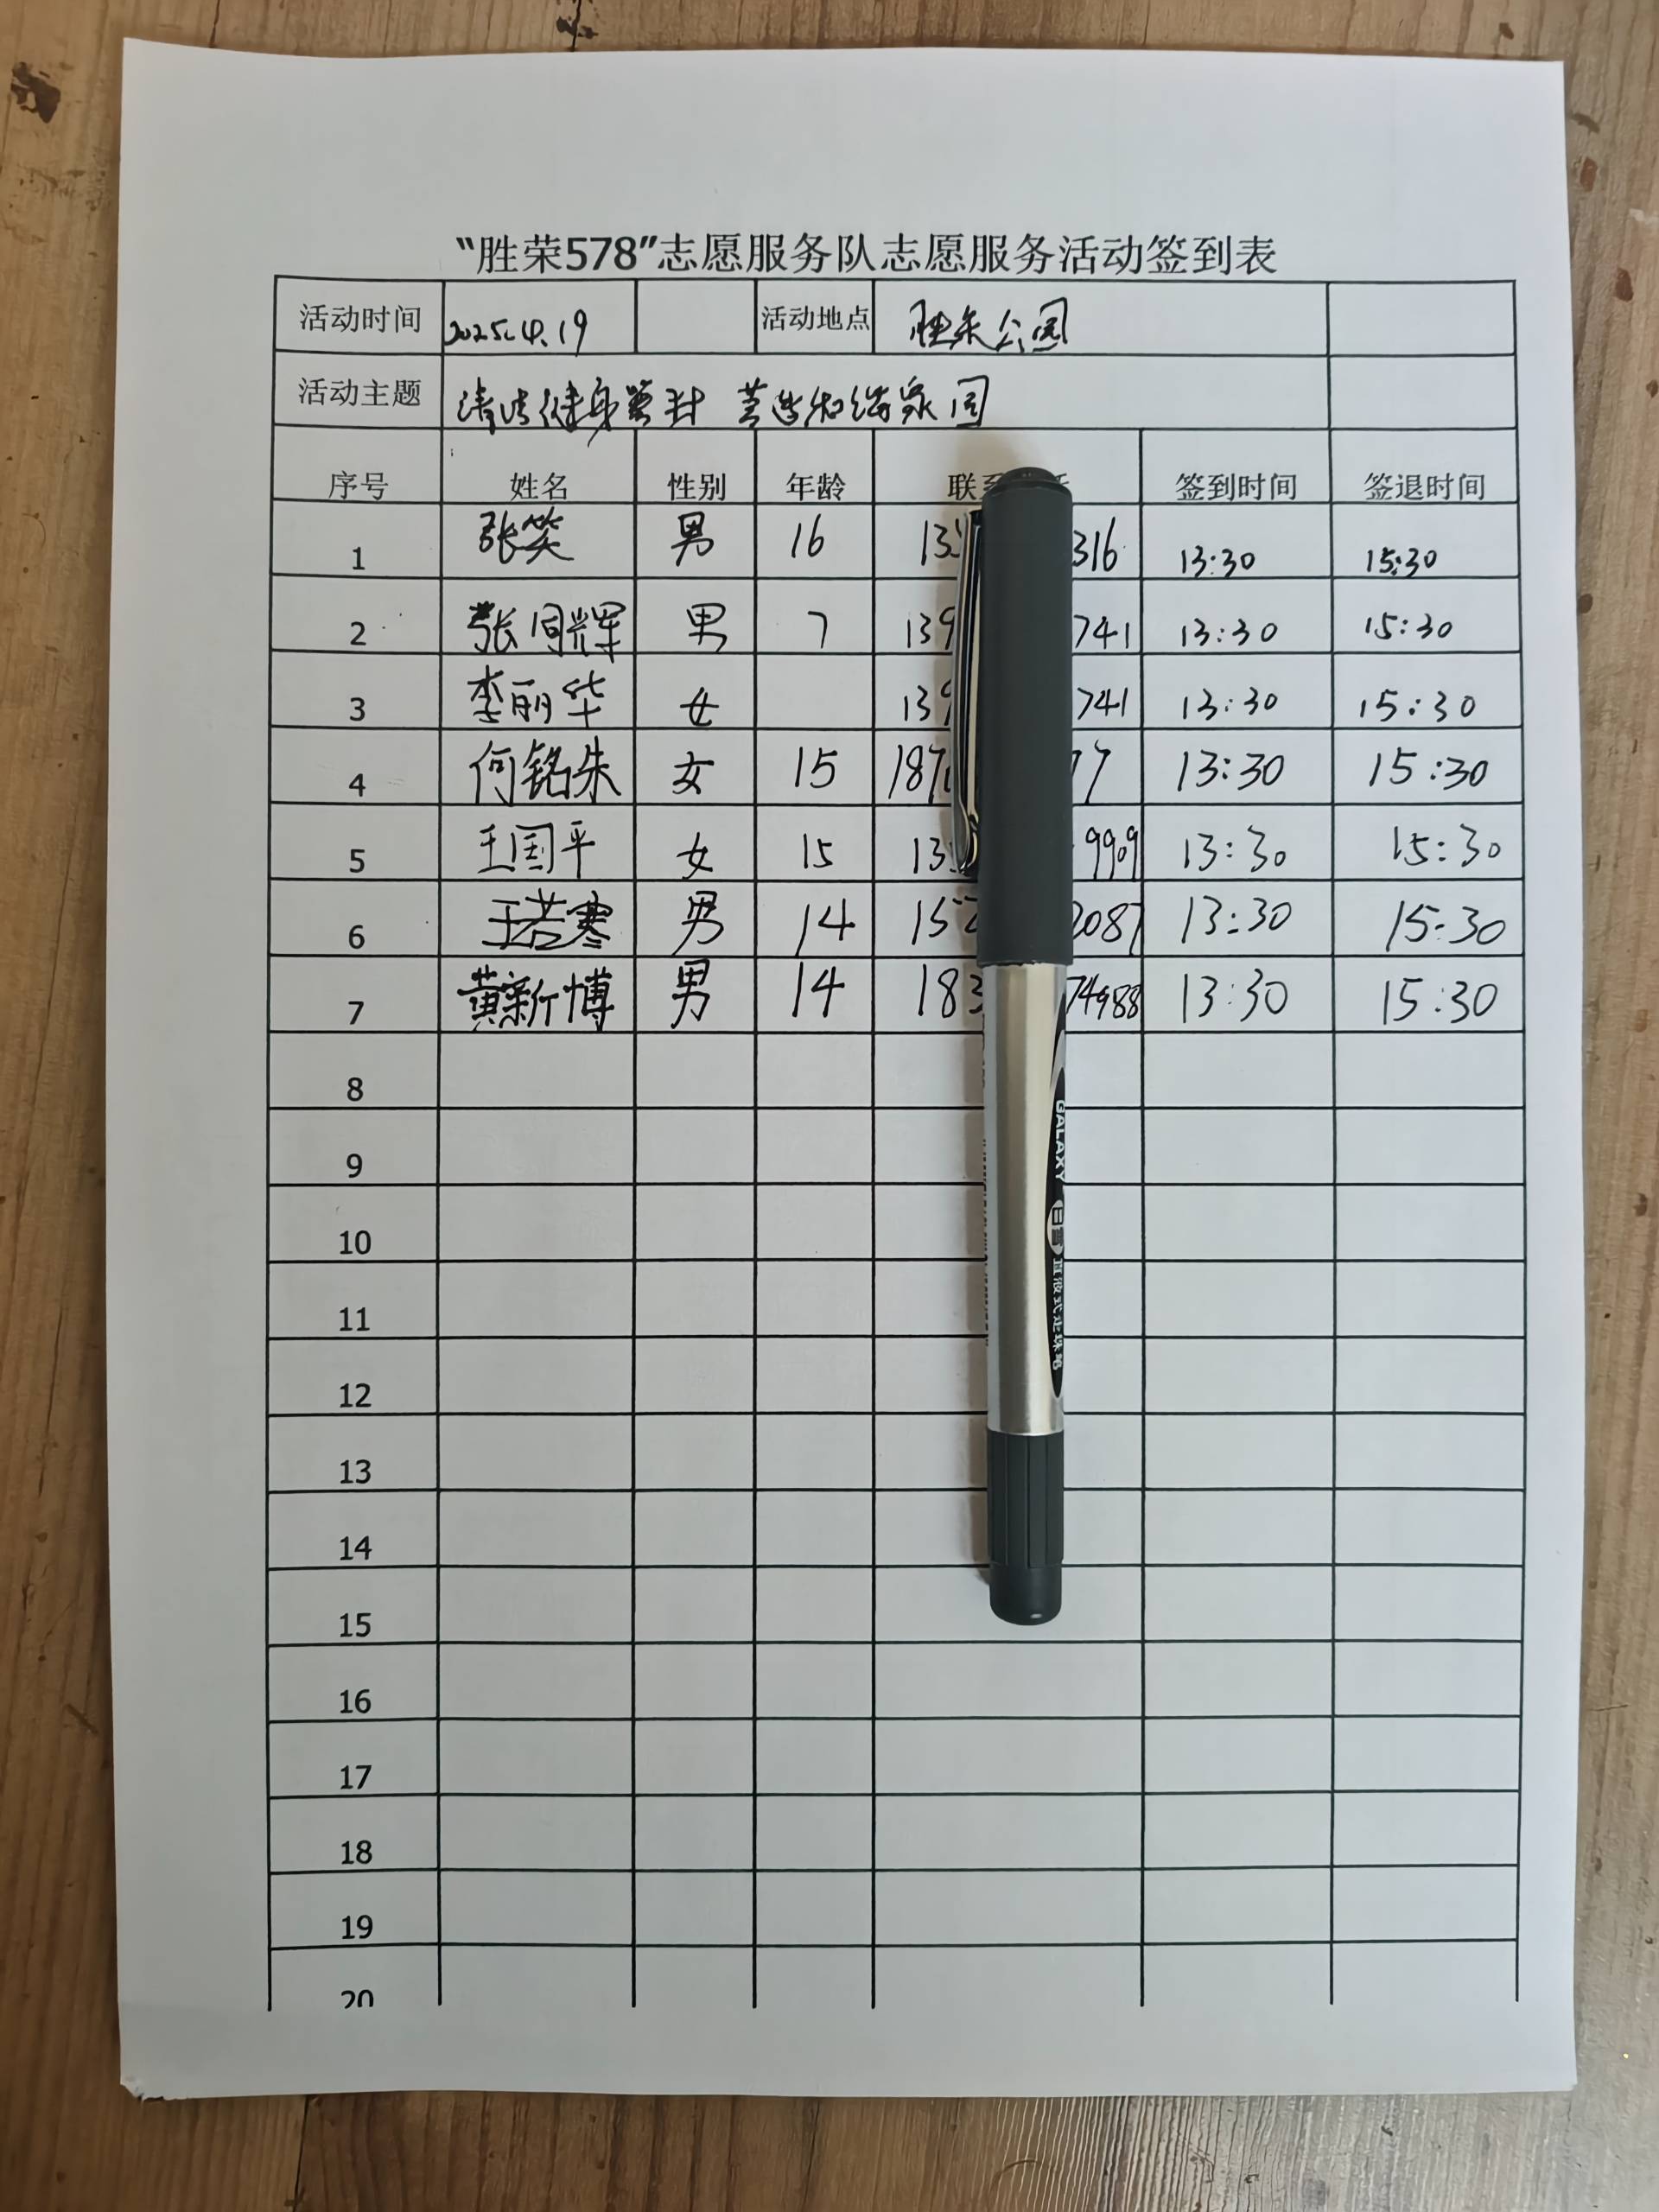 “胜荣578”志愿服务队志愿服务活动签到表
活动时间 2025.4.19 活动地点 胜荣公园
活动主题 清洁健身器材 营造和谐家园
序号 姓名 性别 年龄 联系 签到时间 签退时间
1 张笑 男 16 13 316 13:30 15:30
2 张同辉 男 7 139 741 13:30 15:30
3 李丽华 女 139 741 13:30 15:30
4 何铭朱 女 15 187 77 13:30 15:30
5 王国平 女 15 13 9909 13:30 15:30
6 于若寒 男 14 152 2087 13:30 15:30
7 黄新博 男 14 183 74988 13:30 15:30
8
9
10
11
12
13
14
15
16
17
18
19
20
GALAXY 白雪 直液式走珠笔